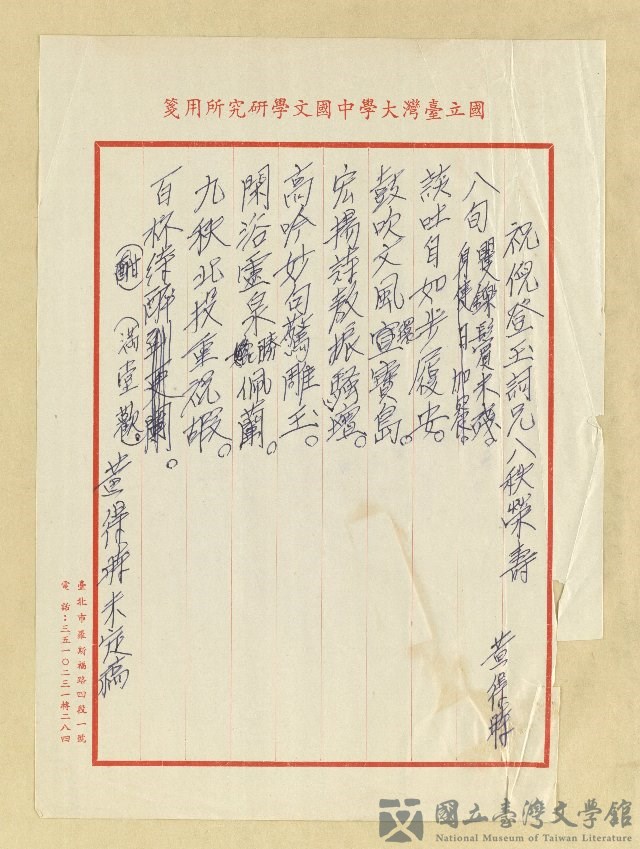 國立臺灣大學中國文學研究所用箋
祝倪登玉詞兄八秩榮壽
黃得時
八旬矍鑠鬢未殘。
身健日加餐。
談吐自如步履安。
鼓吹文風宣環寶島。
宏揚詩教振騷壇。
高吟妙句驚雕玉。
閑浴靈泉勝佩蘭。
九秩北投重祝嘏。
百杯待醉到更闌。
酣 滿堂歡。
黃得時未定稿
臺北市羅斯福路四段一號
電話：三五一〇二三一轉二八四
國立臺灣文學館
National Museum of Taiwan Literature